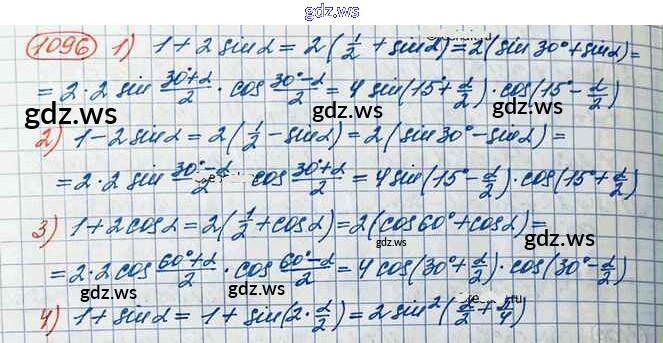 gdz.ws
1096 1) 1 + 2 sin α = 2(1/2 + sin α) = 2(sin 30° + sin α) =
= 2·2 sin (30°+α)/2 · cos (30°−α)/2 = 4 sin(15° + α/2) · cos(15° − α/2)
gdz.ws gdz.ws
2) 1 − 2 sin α = 2(1/2 − sin α) = 2(sin 30° − sin α) =
= 2·2 sin (30°−α)/2 · cos (30°+α)/2 = 4 sin(15° − α/2) · cos(15° + α/2)
3) 1 + 2 cos α = 2(1/2 + cos α) = 2(cos 60° + cos α) =
gdz.ws
= 2·2 cos (60°+α)/2 · cos (60°−α)/2 = 4 cos(30° + α/2) · cos(30° − α/2)
gdz.ws gdz.ws
4) 1 + sin α = 1 + sin(2 · α/2) = 2 sin²(α/2 + π/4)